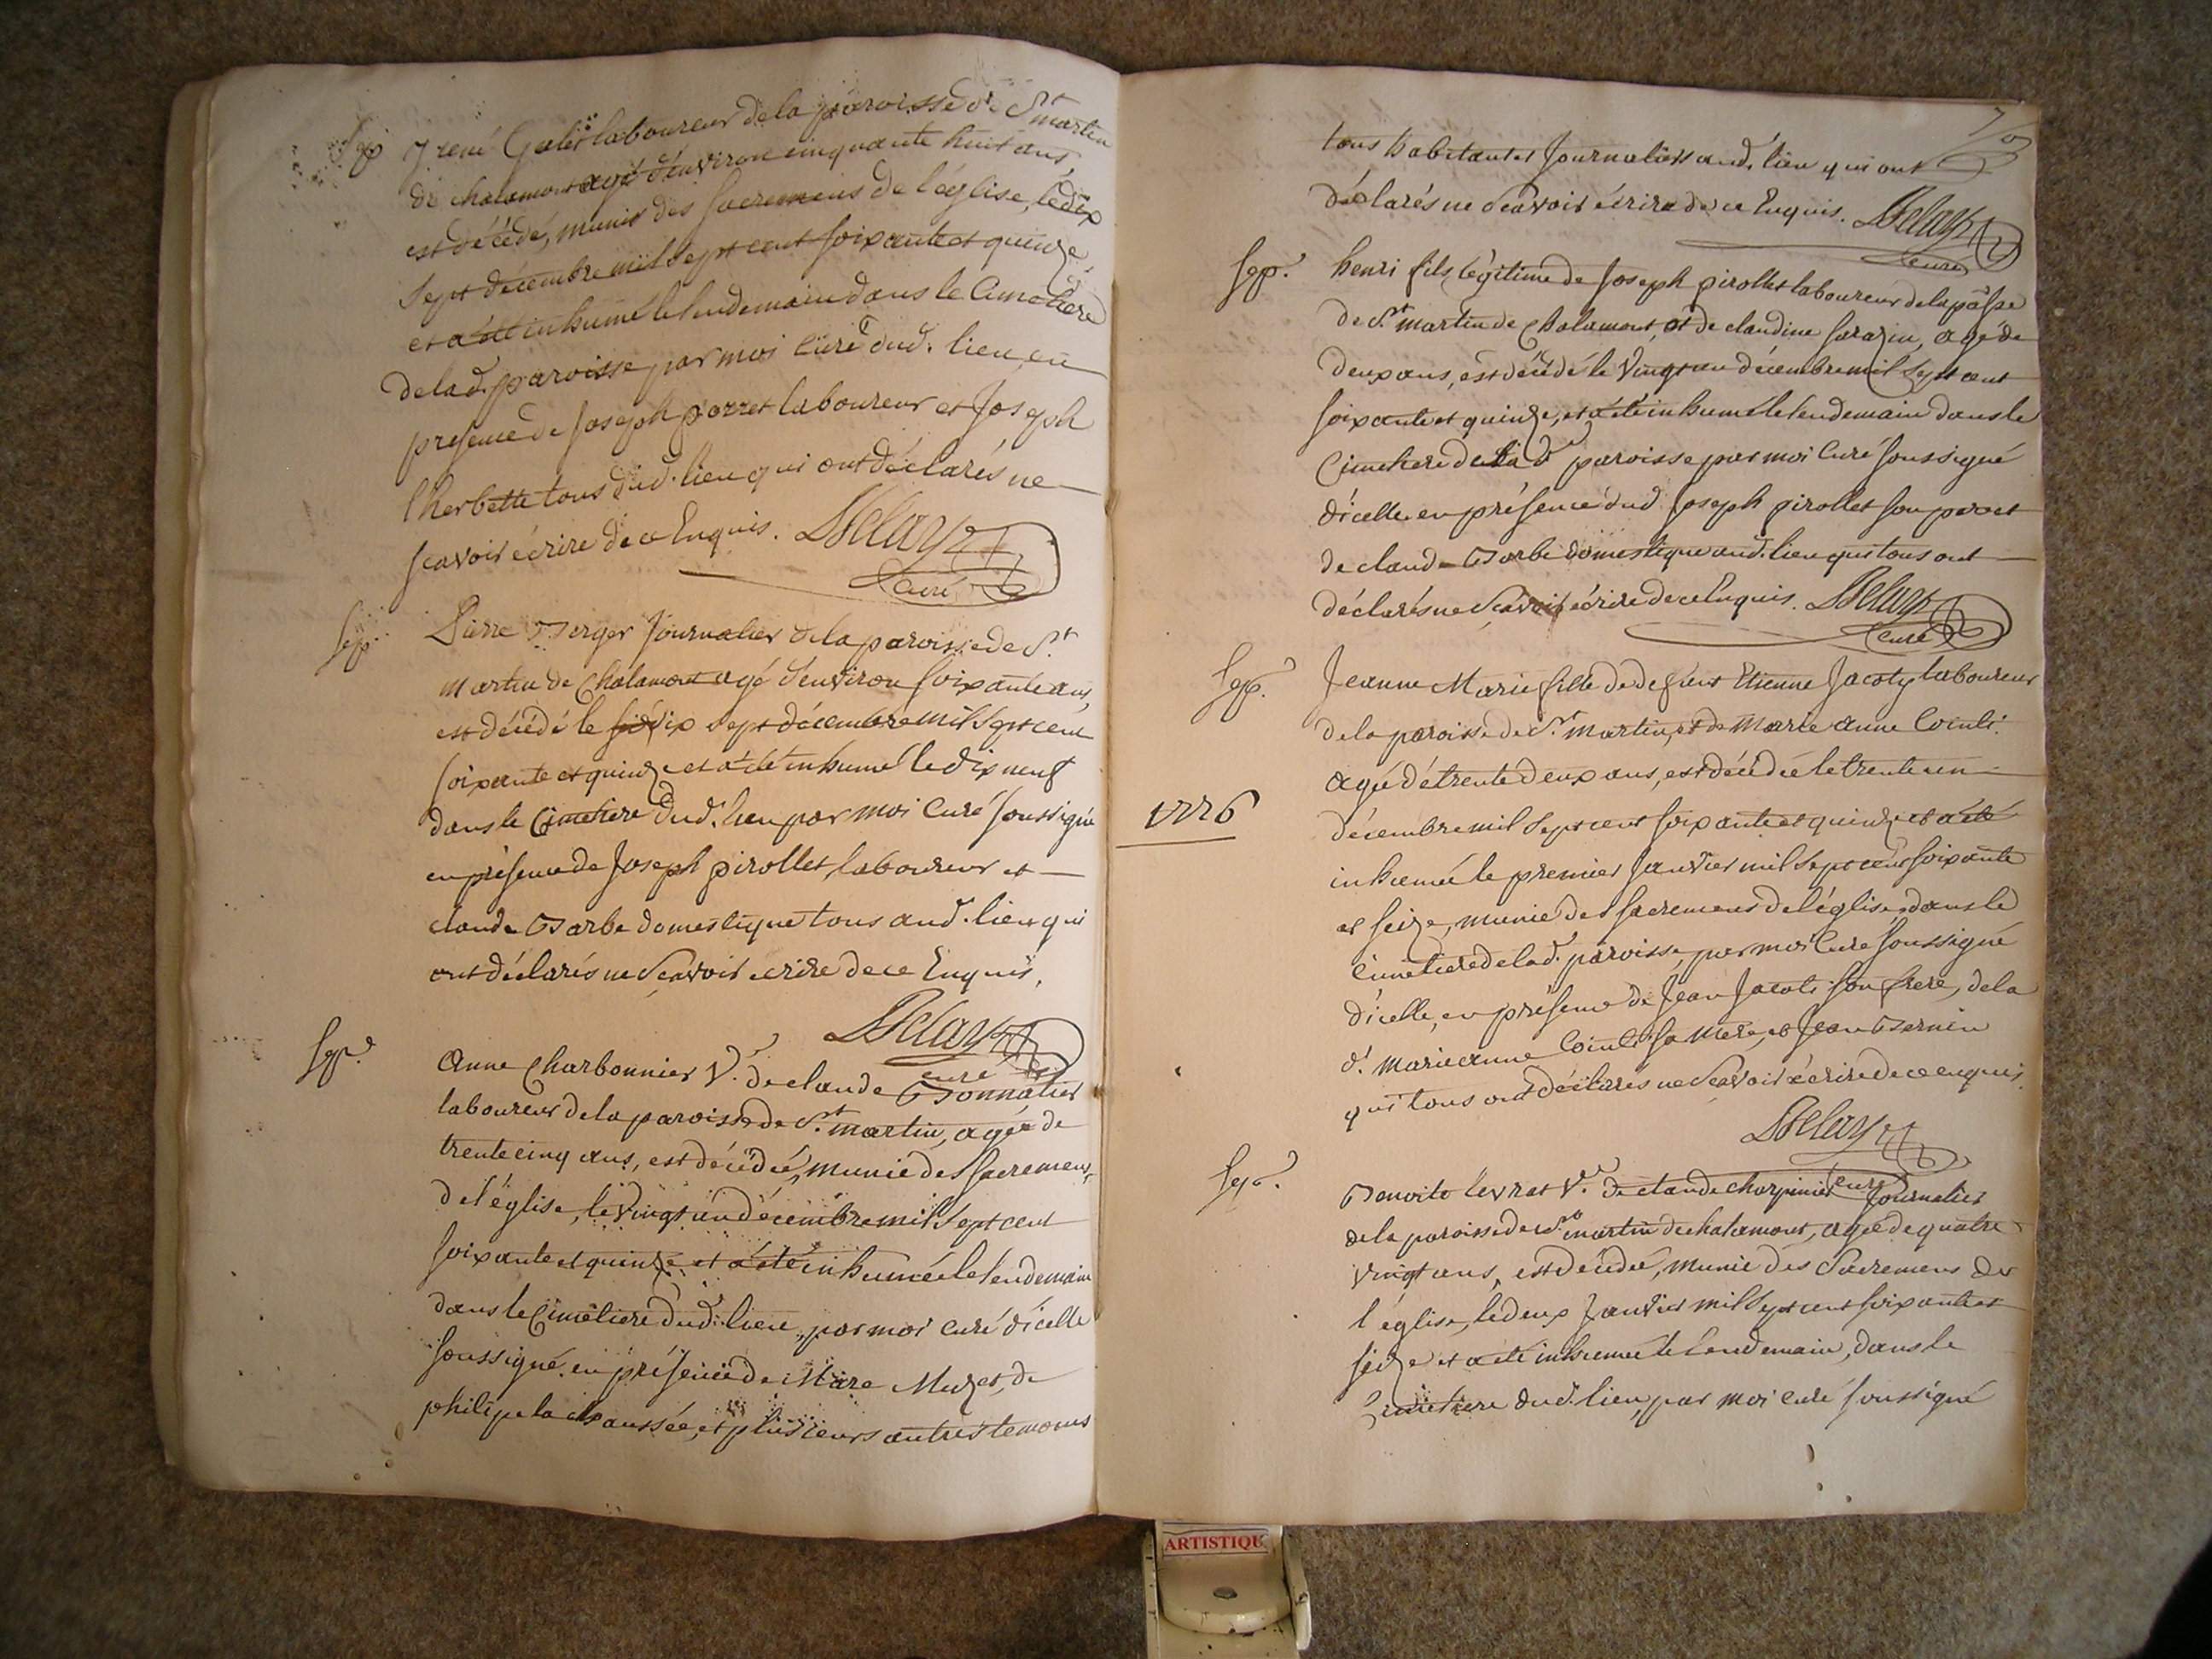 Sep.
Irené Galet laboureur de la paroisse de St martin
de chalamont agé d'environ cinquante huit ans,
est décédé, munit des sacremens de l'église, le dix
sept décembre mil sept cent soixante et quinze
et a été inhumé le lendemain dans le Cimetiere
de lad. paroisse par moi Curé dud. lieu en
presence de Joseph porret laboureur et Joseph
l'herbette tous dud. lieu qui ont déclarés ne
scavoir écrire de ce Enquis. Delay
curé
Sep.
Pierre Berger Journalier de la paroisse de St.
martin de Chalamont agé d'environ soixante ans,
est décédé le dix sept décembre mil sept cent
soixante et quinze et a été inhumé le dix neuf
dans le Cimetiere dud. lieu par moi Curé soussigné
en présence de Joseph pirollet, laboureur et
claude Barbe domestique tous aud. lieu qui
ont déclarés ne Scavoir écrire de ce Enquis.
Delay
curé
Sep.
Anne Charbonnier Ve. de claude Bonnatier
laboureur de la paroisse de St. martin, agée de
trente cinq ans, est décédée, munie des sacremens
de l'église, le vingt un décembre mil sept cent
soixante et quinze et a été inhumée le lendemain
dans le Cimetiere dud. lieu, par moi curé d'icelle
soussigné en présence de Mare Muzet, de
philipe la chaussée, et plusieurs autres temoins
tous habitants et Journaliers aud. lieu qui ont
déclarés ne Scavoir écrire de ce Enquis. Delay
curé
Sep.
henri fils légitime de Joseph pirollet laboureur de la posse
de St. martin de Chalamont, et de claudine sarazin, agé de
deux ans, est décédé le Vingt un décembre mil sept cent
soixante et quinze, et a été inhumé le lendemain dans le
Cimetiere de lad. paroisse par moi Curé soussigné
d'icelle en présence dud. Joseph pirollet son pere et
de claude Barbe domestique aud. lieu qui tous ont
déclarés ne Scavoir écrire de ce Enquis. Delay
curé
Sep.
Jeanne Marie fille de defunt Etienne Jacoty laboureur
de la paroisse de St. martin, et de Marie anne Cointi.
agée de trente deux ans, est décédée le trente un
1776
décembre mil sept cent soixante et quinze et a été
inhumée le premier Janvier mil sept cent soixante
et seize, munie des sacremens de l'église, dans le
Cimetiere de lad. paroisse, par moi Curé soussigné
d'icelle, en présence de Jean Jacoti son frere, de la
d. marie anne Cointi sa Mere, et Jean Bernin
qui tous ont déclarés ne Scavoir écrire de ce enquis.
Delay
curé
Sep.
Benoite levrat Ve. de claude charpinier Journalier
de la paroisse de St. martin de chalamont, agée de quatre
vingt ans, est décédée, munie des Sacremens de
l'église, le deux Janvier mil sept cent soixante et
seize et a été inhumée le lendemain, dans le
Cimetiere dud. lieu, par moi curé soussigné
ARTISTIQU